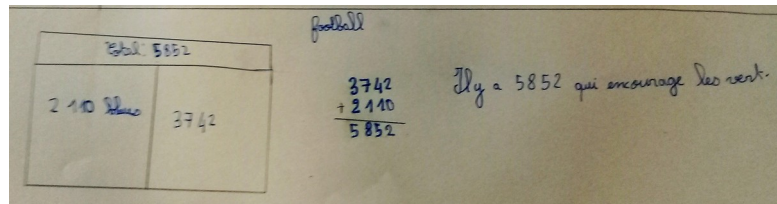 football
Total: 5852
2 110 bleus
3742
3742
+ 2110
5852
Il y a 5852 qui encourage les vert.